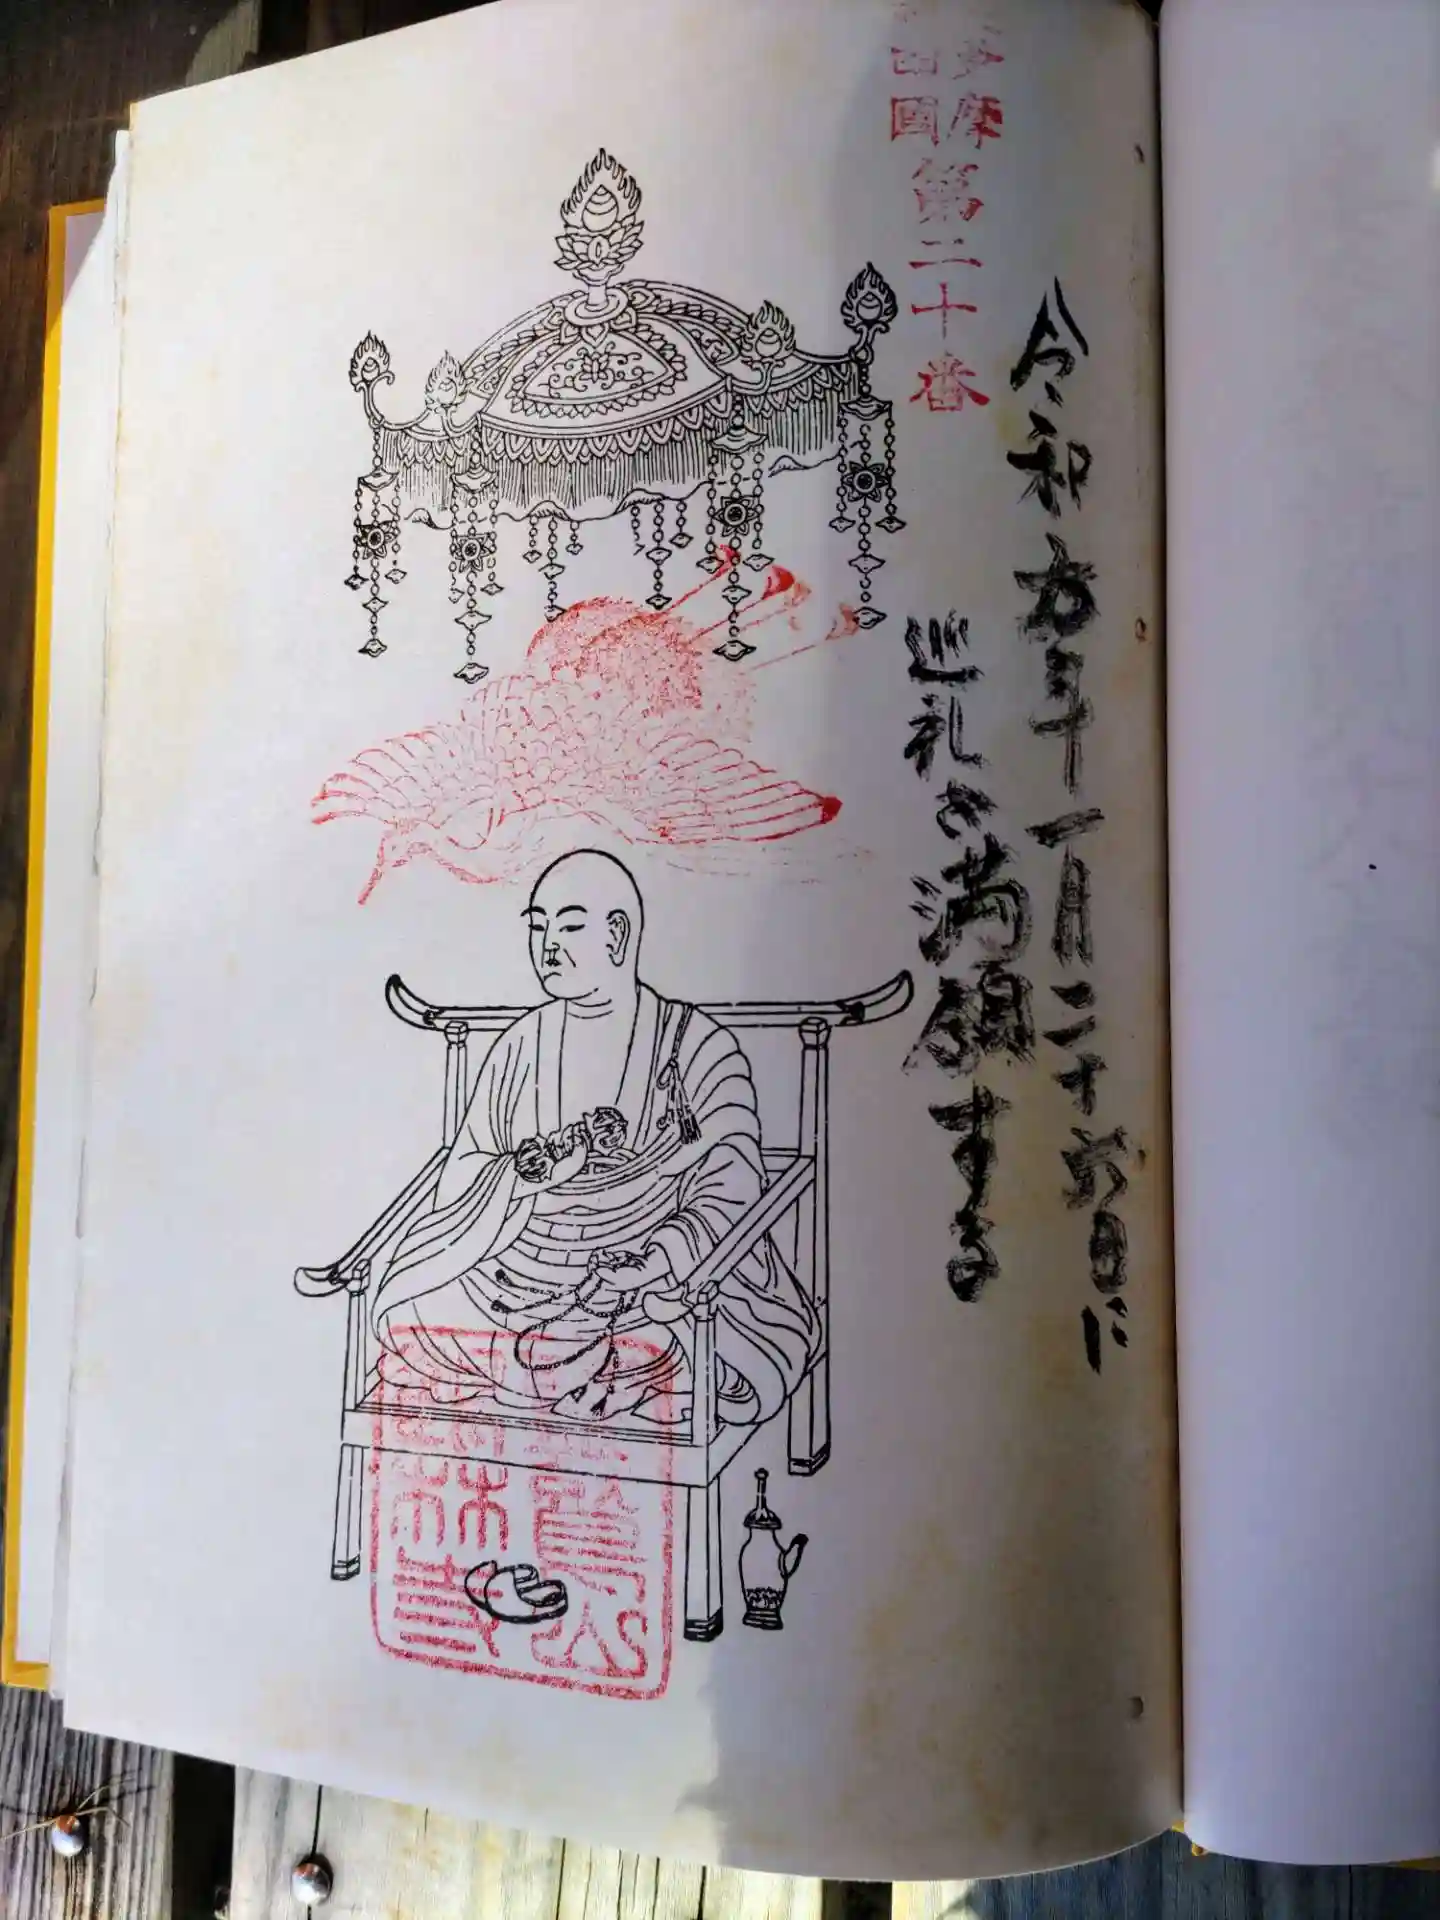 多摩
四國
第二十番
令和五年十一月二十六日に
巡礼を満願する